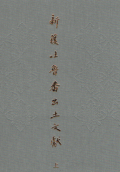 新獲吐魯番出土文獻
上